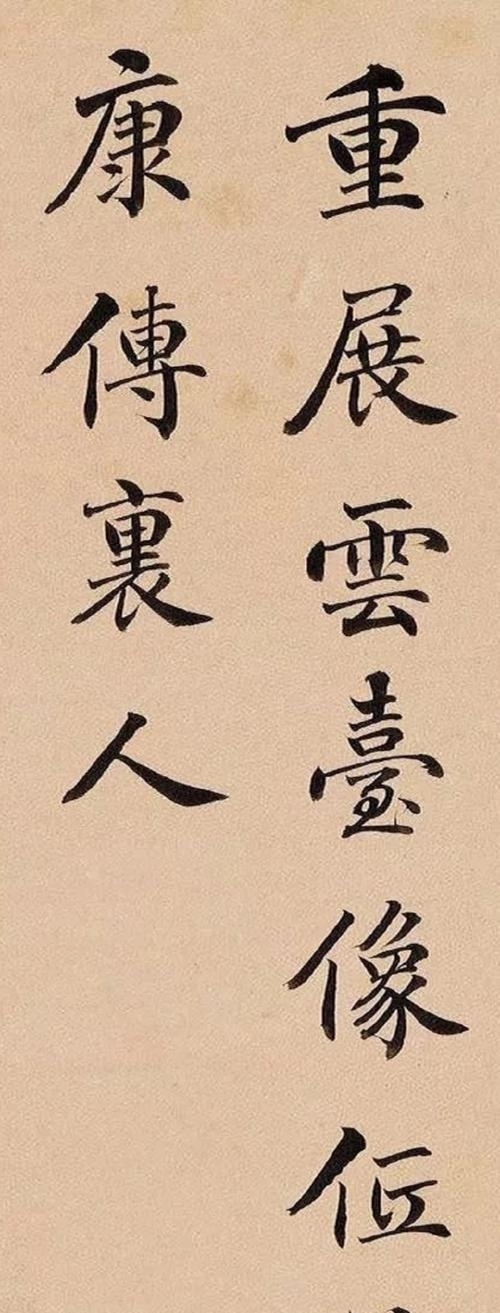 重展雲臺像
康傳裏人